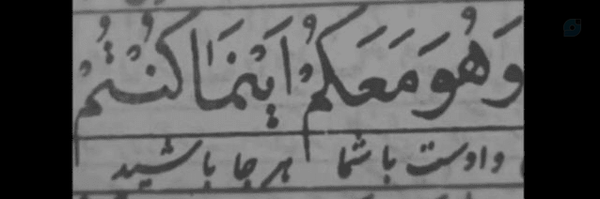 وَهُوَ مَعَكُمْ اَيْنَمَا كُنْتُمْ
و اوست با شما هر جا باشید